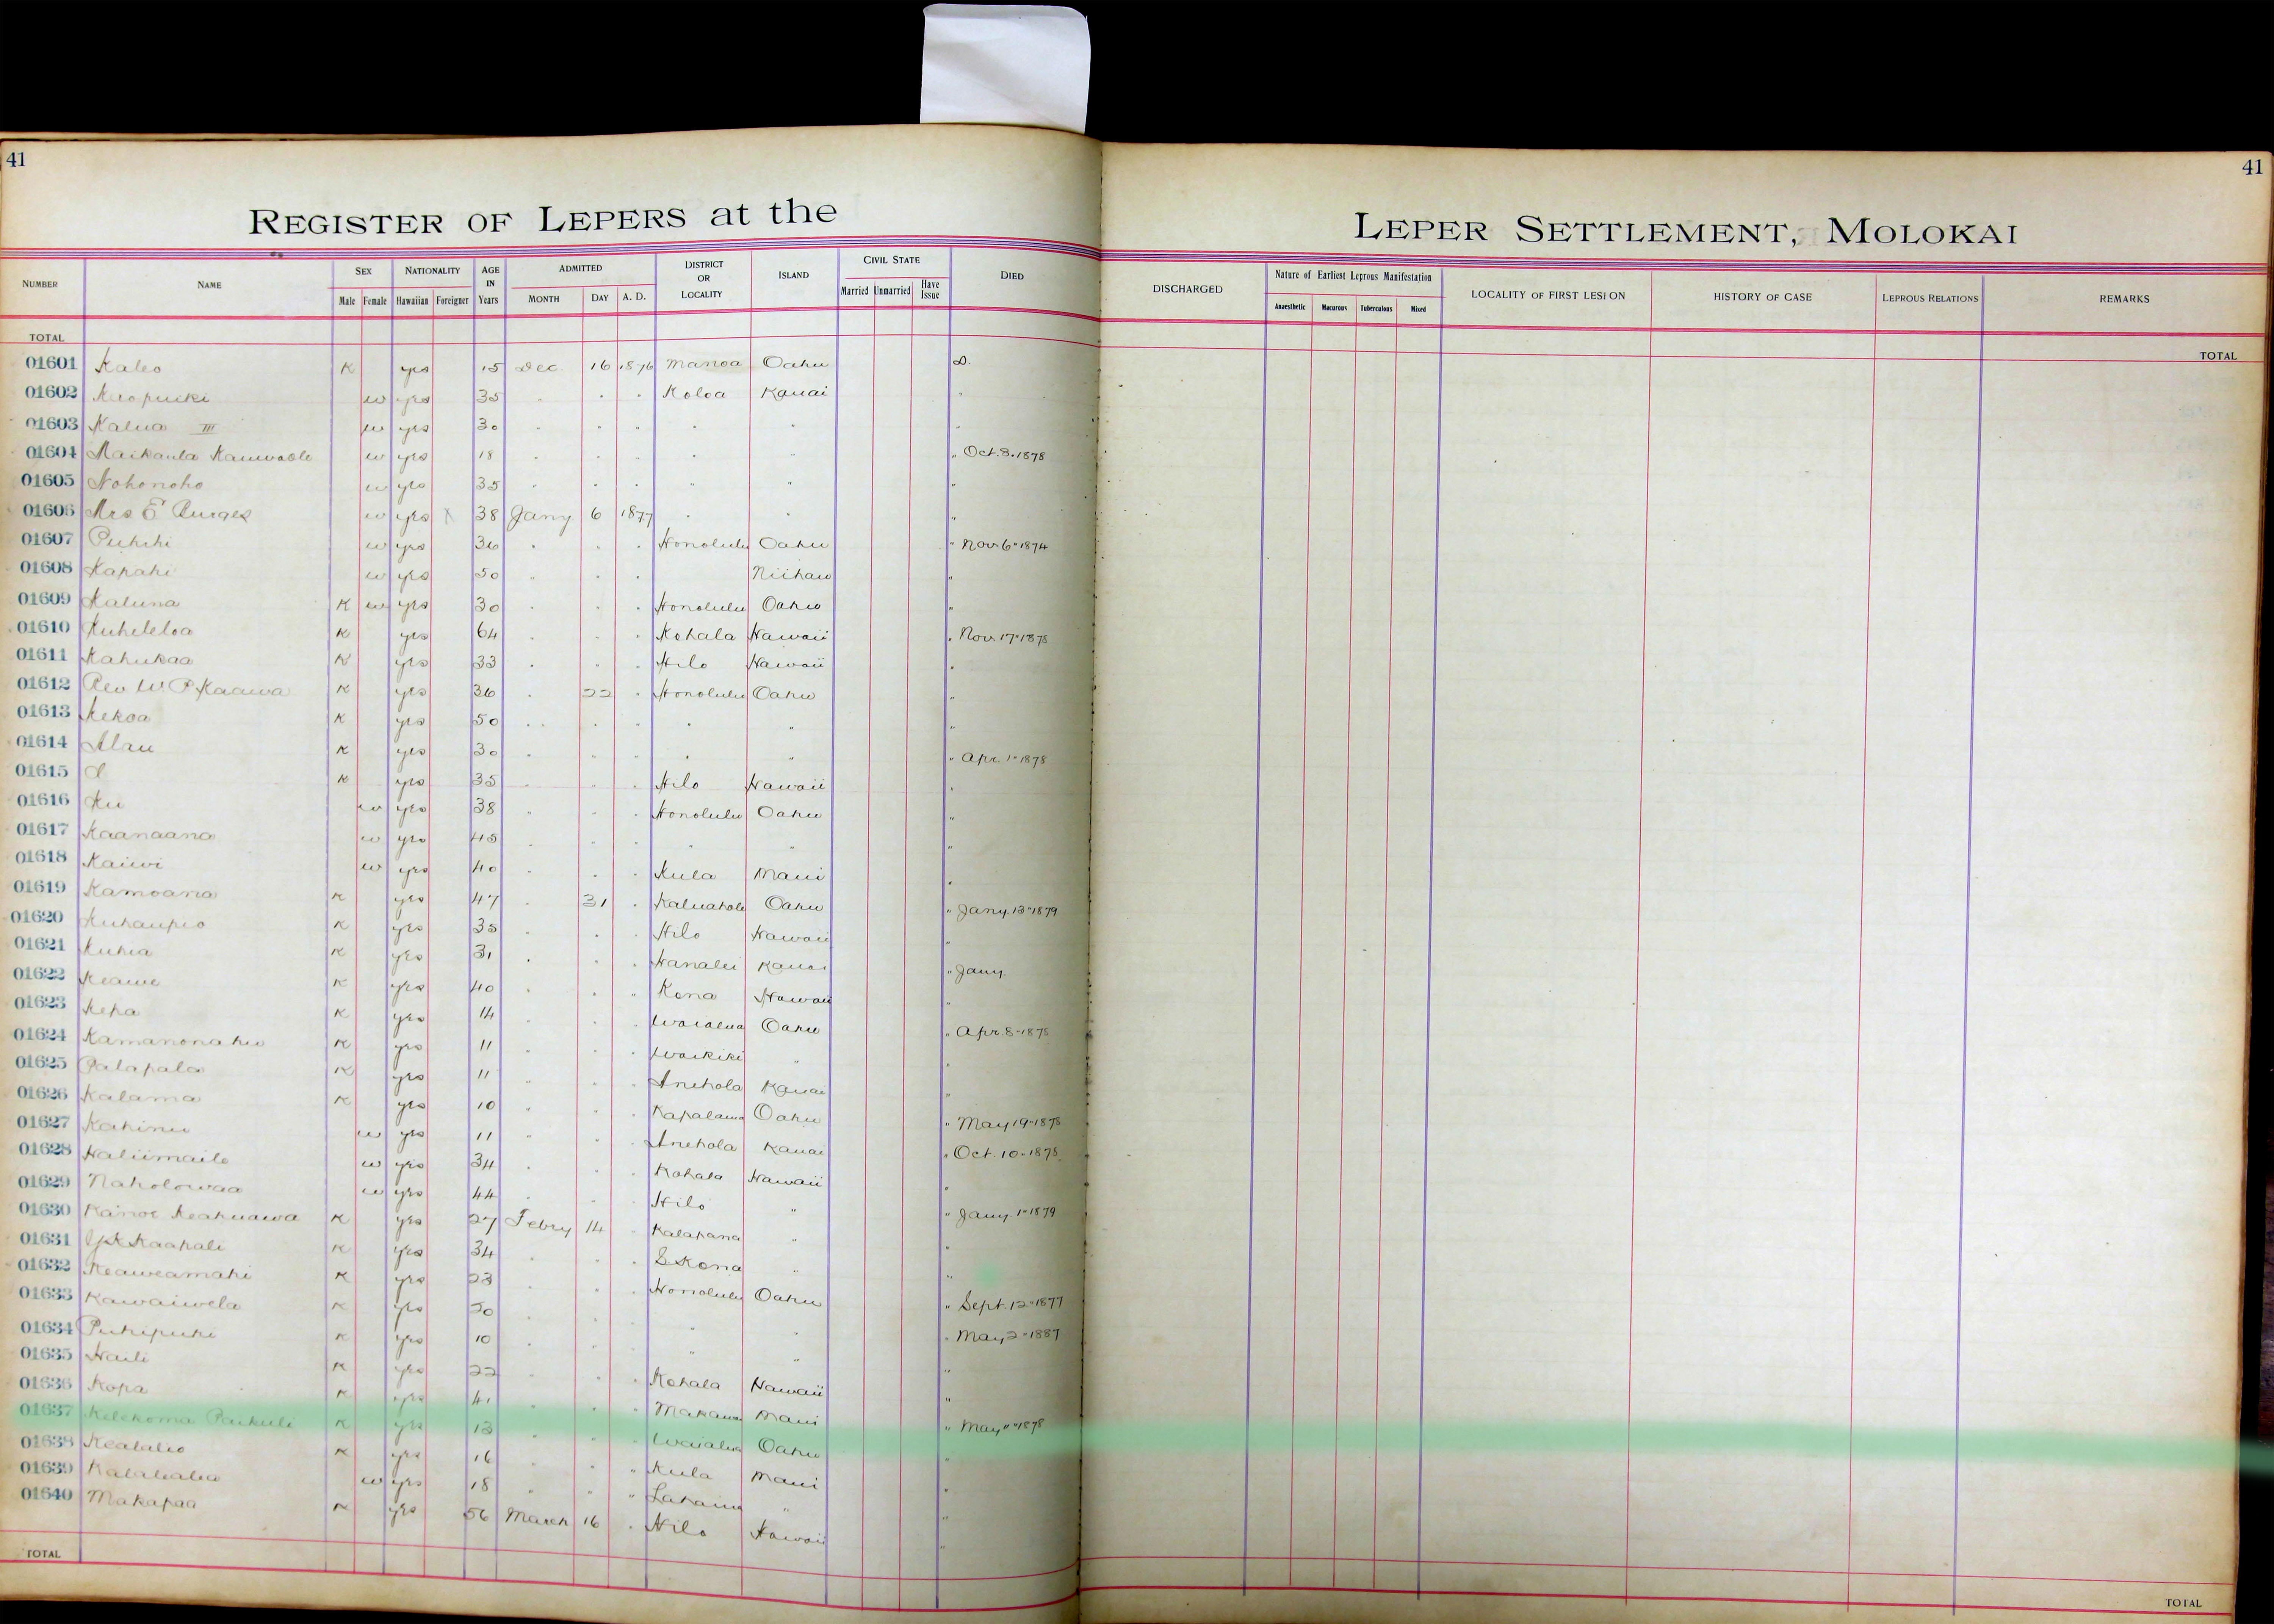 41
41
REGISTER OF LEPERS at the LEPER SETTLEMENT, MOLOKAI
NUMBER NAME SEX Male Female NATIONALITY Hawaiian Foreigner AGE IN Years ADMITTED MONTH DAY A. D. DISTRICT OR LOCALITY ISLAND CIVIL STATE Married Unmarried Have Issue DIED DISCHARGED Nature of Earliest Leprous Manifestation Anaesthetic Macurous Tuberculous Mixed LOCALITY OF FIRST LESION HISTORY OF CASE LEPROUS RELATIONS REMARKS
TOTAL TOTAL
01601 Kaleo K yes 15 Dec. 16 1876 Manoa Oahu D.
01602 w yes 35 " " " Koloa Kauai "
01603 Kalua III w yes 30 " " " " " "
01604 Maikaula w yes 18 " " " " " " Oct. 3. 1878
01605 Nohonoho w yes 35 " " " " " "
01606 Mrs E Burges w yes X 38 Jany 6 1877 " " "
01607 Puhihi w yes 36 " " " Honolulu Oahu " Nov. 6" 1874
01608 Kapahi w yes 50 " " " Niihau "
01609 Kaluna K w yes 30 " " " Honolulu Oahu "
01610 Kuheleloa K yes 64 " " " Kohala Hawaii " Nov. 17" 1878
01611 Kahukaa K yes 33 " " " Hilo Hawaii "
01612 Rev W. P. Kaawa K yes 36 " 22 " Honolulu Oahu "
01613 Kekoa K yes 50 " " " " " "
01614 Alau K yes 30 " " " " " " Apr. 1" 1878
01615 K yes 35 " " " Hilo Hawaii "
01616 Ku w yes 38 " " " Honolulu Oahu "
01617 Kaanaana w yes 45 " " " " " "
01618 Kaiwi w yes 40 " " " Kula Maui "
01619 Kamoana K yes 47 " 31 " Oahu " Jany. 13" 1879
01620 Kuhaupio K yes 35 " " " Hilo Hawaii "
01621 Kuhia K yes 31 " " " Hanalei Kauai " Jany.
01622 Keawe K yes 40 " " " Kona Hawaii "
01623 Kepa K yes 14 " " " Waialua Oahu " Apr. 8" 1878
01624 Kamanonahu K yes 11 " " " Waikiki " "
01625 Palapala K yes 11 " " " Anehola Kauai "
01626 Kalama K yes 10 " " " Kapalama Oahu " May 19" 1878
01627 Kahinu w yes 11 " " " Anehola Kauai " Oct. 10" 1878
01628 Haliimaile w yes 34 " " " Kohala Hawaii "
01629 Naholowaa w yes 44 " " " Hilo " " Jany. 1" 1879
01630 Kanoe Keakuawa K yes 27 Febry 14 " Kalapana " "
01631 Kaapale K yes 34 " " " S Kona " "
01632 Keaweamahi K yes 23 " " " Honolulu Oahu " Sept. 12" 1877
01633 Kawaiwela K yes " " " " " " May 2" 1887
01634 Puhipuhi K yes 10 " " " " " "
01635 Haili K yes 22 " " " Kohala Hawaii "
01636 Kopa K yes 41 " " " Makawao Maui " May 11" 1878
01637 Kelekoma Paikuli K yes 13 " " " Waialua Oahu "
01638 Kealalio K yes 16 " " " Kula Maui "
01639 w yes 18 " " " Lahaina " "
01640 Makapaa K yes 56 March 16 " Hilo Hawaii "
TOTAL TOTAL